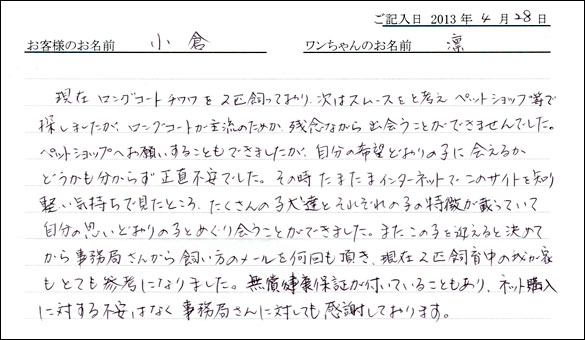 ご記入日 2013年 4月 28日
お客様のお名前 小倉 ワンちゃんのお名前 凛
現在 ロングコートチワワを 2匹飼っており、次はスムースをと考え ペットショップ等で
探しましたが、ロングコートが主流のためか、残念ながら 出会うことができませんでした。
ペットショップへお願いすることもできましたが、自分の希望どおりの子に 会えるか
どうかも分からず 正直 不安でした。その時 たまたまインターネットで このサイトを知り
軽い気持ちで見たところ、たくさんの子犬達と それぞれの子の特徴が載っていて
自分の思いどおりの子とめぐり会うことができました。また この子を迎えると決めて
から 事務局さんから 飼い方のメールを何回も頂き、現在 2匹飼育中の我が家
も とても参考になりました。無償生命保証が付いていることもあり、ネット購入
に対する不安はなく 事務局さんに対しても 感謝しております。